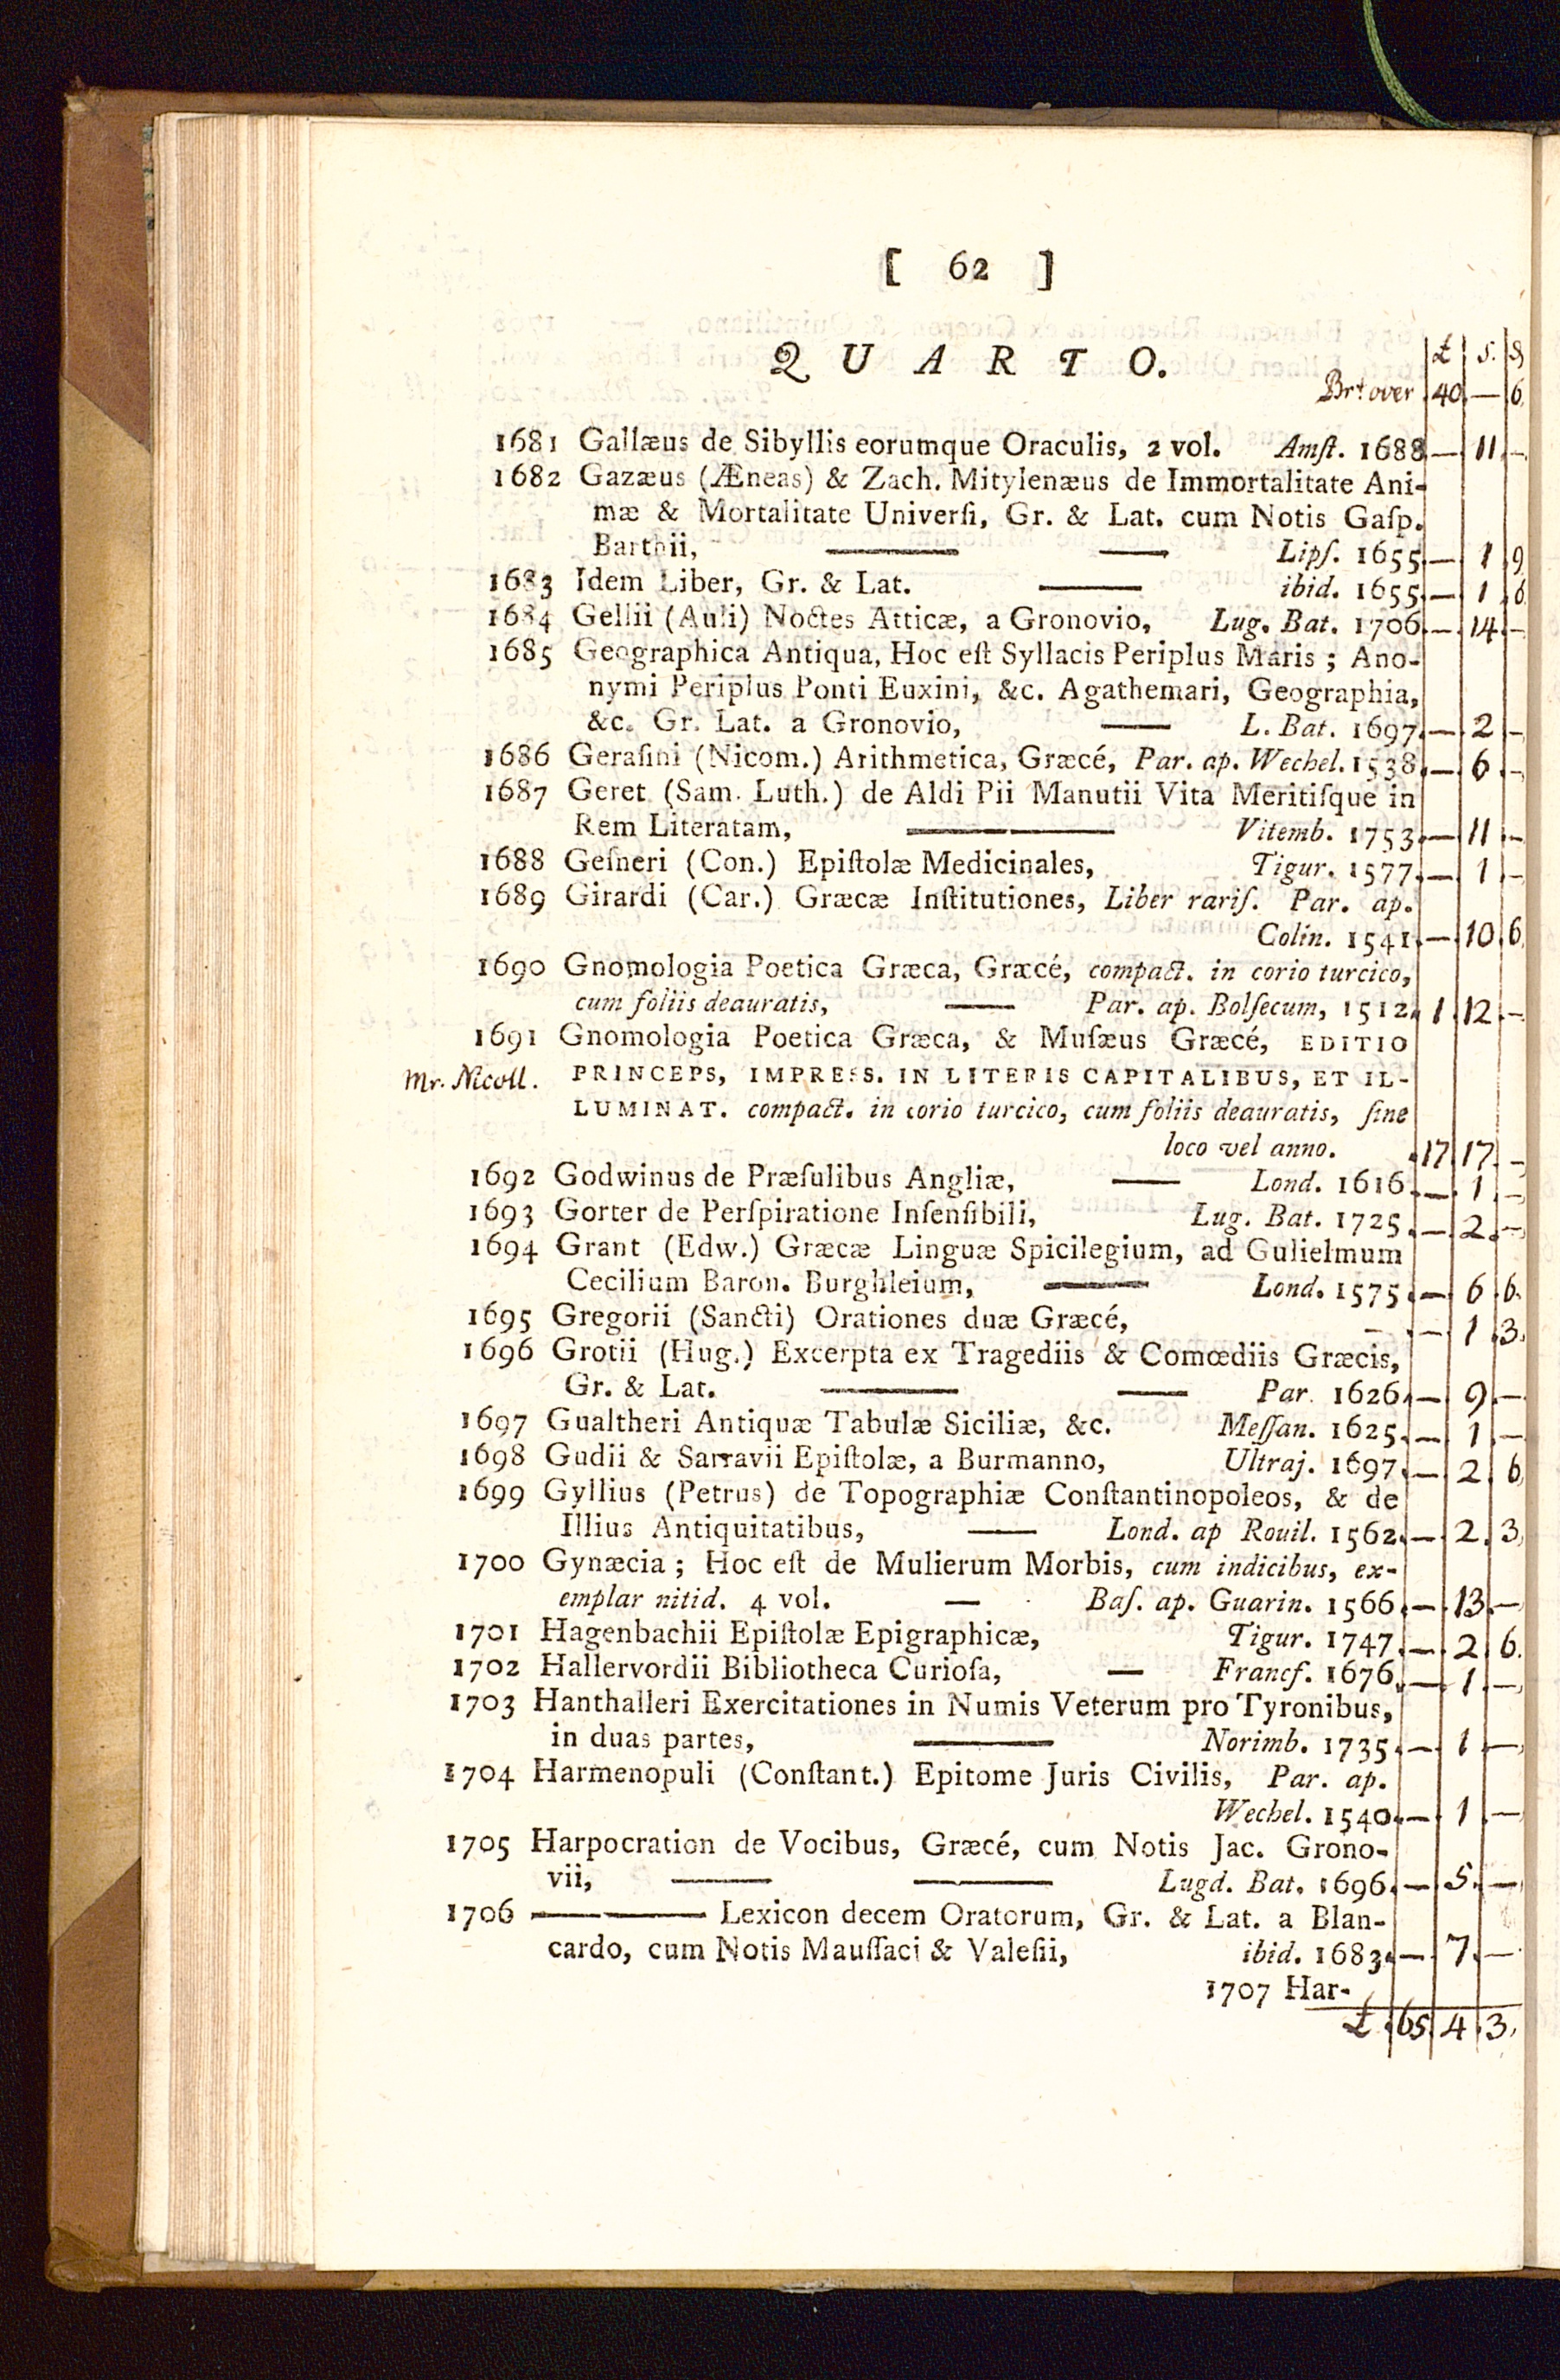 [ 62 ]
QUARTO.
£ s. d
Brt over 40 — 6
1681 Gallæus de Sibyllis eorumque Oraculis, 2 vol. Amſt. 1688 — 11 —
1682 Gazæus (Æneas) & Zach. Mitylenæus de Immortalitate Ani-
mæ & Mortalitate Univerſi, Gr. & Lat. cum Notis Gaſp.
Barthii, —— —— Lipſ. 1655 — 1 9
1683 Idem Liber, Gr. & Lat. —— ibid. 1655 — 1 6
1684 Gellii (Auli) Noctes Atticæ, a Gronovio, Lug. Bat. 1706 — 14 —
1685 Geographica Antiqua, Hoc eſt Syllacis Periplus Maris ; Ano-
nymi Periplus Ponti Euxini, &c. Agathemari, Geographia,
&c. Gr. Lat. a Gronovio, —— L. Bat. 1697 — 2 —
1686 Geraſini (Nicom.) Arithmetica, Græcé, Par. ap. Wechel. 1538 — 6 —
1687 Geret (Sam. Luth.) de Aldi Pii Manutii Vita Meritiſque in
Rem Literatam, —— Vitemb. 1753 — 11 —
1688 Geſneri (Con.) Epiſtolæ Medicinales, Tigur. 1577 — 1 —
1689 Girardi (Car.) Græcæ Inſtitutiones, Liber rariſ. Par. ap.
Colin. 1541 — 10 6
1690 Gnomologia Poetica Græca, Græcé, compact. in corio turcico,
cum foliis deauratis, —— Par. ap. Bolſecum, 1512 1 12 —
1691 Gnomologia Poetica Græca, & Muſæus Græcé, EDITIO
Mr. Nicoll. PRINCEPS, IMPRESS. IN LITERIS CAPITALIBUS, ET IL-
LUMINAT. compact. in corio turcico, cum foliis deauratis, ſine
loco vel anno. 17 17 —
1692 Godwinus de Præſulibus Angliæ, —— Lond. 1616 — 1 —
1693 Gorter de Perſpiratione Inſenſibili, Lug. Bat. 1725 — 2 —
1694 Grant (Edw.) Græcæ Linguæ Spicilegium, ad Gulielmum
Cecilium Baron. Burghleium, —— Lond. 1575 — 6 6
1695 Gregorii (Sancti) Orationes duæ Græcé, — — 1 3
1696 Grotii (Hug.) Excerpta ex Tragediis & Comœdiis Græcis,
Gr. & Lat. —— —— Par. 1626 — 9 —
1697 Gualtheri Antiquæ Tabulæ Siciliæ, &c. Meſſan. 1625 — 1 —
1698 Gudii & Sarravii Epiſtolæ, a Burmanno, Ultraj. 1697 — 2 6
1699 Gyllius (Petrus) de Topographiæ Conſtantinopoleos, & de
Illius Antiquitatibus, —— Lond. ap Rouil. 1562 — 2 3
1700 Gynæcia ; Hoc eſt de Mulierum Morbis, cum indicibus, ex-
emplar nitid. 4 vol. — Baſ. ap. Guarin. 1566 — 13 —
1701 Hagenbachii Epiſtolæ Epigraphicæ, Tigur. 1747 — 2 6
1702 Hallervordii Bibliotheca Curioſa, — Francſ. 1676 — 1 —
1703 Hanthalleri Exercitationes in Numis Veterum pro Tyronibus,
in duas partes, —— Norimb. 1735 — 1 —
1704 Harmenopuli (Conſtant.) Epitome Juris Civilis, Par. ap.
Wechel. 1540 — 1 —
1705 Harpocration de Vocibus, Græcé, cum Notis Jac. Grono-
vii, —— —— Lugd. Bat. 1696 — 5 —
1706 —— Lexicon decem Oratorum, Gr. & Lat. a Blan-
cardo, cum Notis Mauſſaci & Valeſii, ibid. 1683 — 7 —
1707 Har-
£ 65 4 3